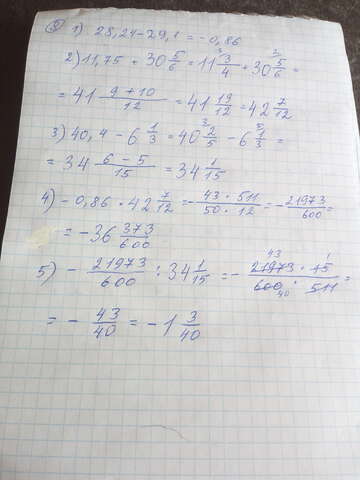 9) 1) 28,24-29,1 = -0,86
2) 11,75 + 30 5/6 = 11 3/4 + 30 5/6 =
= 41 (9+10)/12 = 41 19/12 = 42 7/12
3) 40,4 - 6 1/3 = 40 2/5 - 6 1/3 =
= 34 (6-5)/15 = 34 1/15
4) -0,86 · 42 7/12 = -(43 · 511)/(50 · 12) = -21973/600 =
= -36 373/600
5) -21973/600 : 34 1/15 = -(21973 · 15)/(600 · 511) =
43 1 40
= -43/40 = -1 3/40